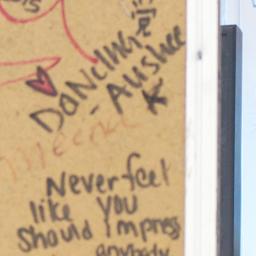 DANCING
- Alishee
Never feel
like you
should impress
anybody